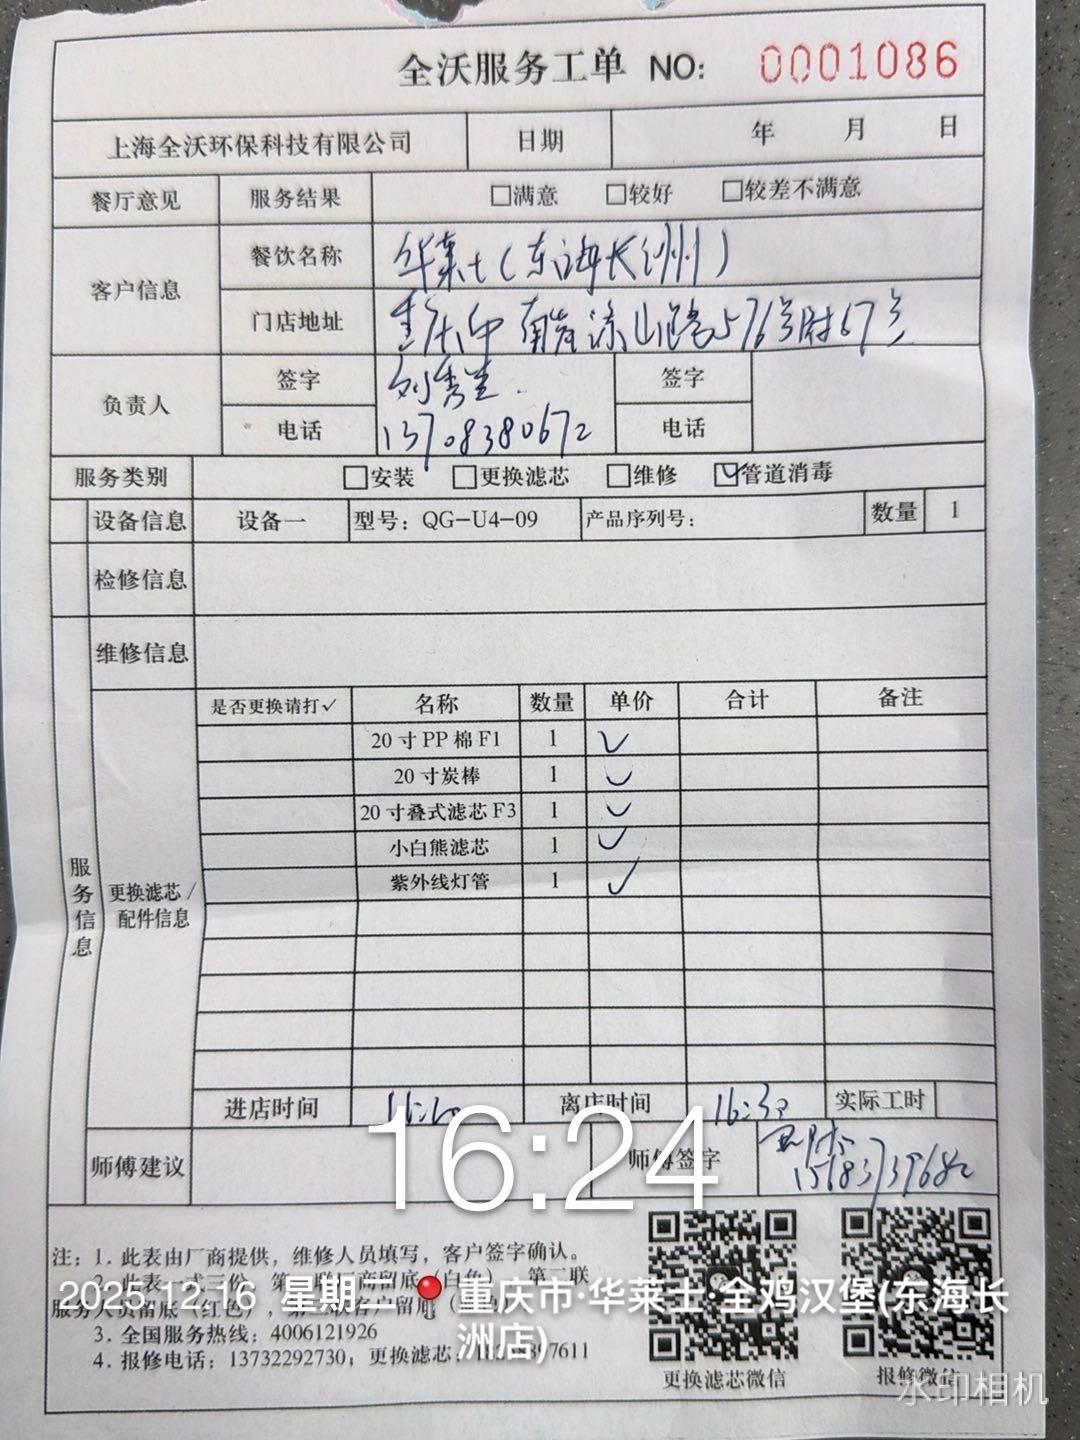 全沃服务工单 NO: 0001086
上海全沃环保科技有限公司 日期 年 月 日
餐厅意见 服务结果 □满意 □较好 □较差不满意
客户信息 餐饮名称 华莱士(东海长洲)
门店地址 重庆市南岸凉山路576号附67号
负责人 签字 刘秀兰 签字
电话 13708380672 电话
服务类别 □安装 □更换滤芯 □维修 ☑管道消毒
设备信息 设备一 型号: QG-U4-09 产品序列号: 数量 1
检修信息
维修信息
服务信息
更换滤芯/配件信息
是否更换请打✓ 名称 数量 单价 合计 备注
20寸PP棉F1 1 ✓
20寸炭棒 1 ✓
20寸叠式滤芯F3 1 ✓
小白熊滤芯 1 ✓
紫外线灯管 1 ✓
进店时间 离店时间 16:30 实际工时
16:24
师傅建议 师傅签字
注: 1. 此表由厂商提供，维修人员填写，客户签字确认。
2. 此表一式三份，第一联厂商留底（白色），第二联
服务人员留底（红色），第三联客户留底
3. 全国服务热线: 4006121926
4. 报修电话: 13732292730; 更换滤芯:
更换滤芯微信 报修微信
2025.12.16 星期二 重庆市·华莱士·全鸡汉堡(东海长
洲店)
水印相机